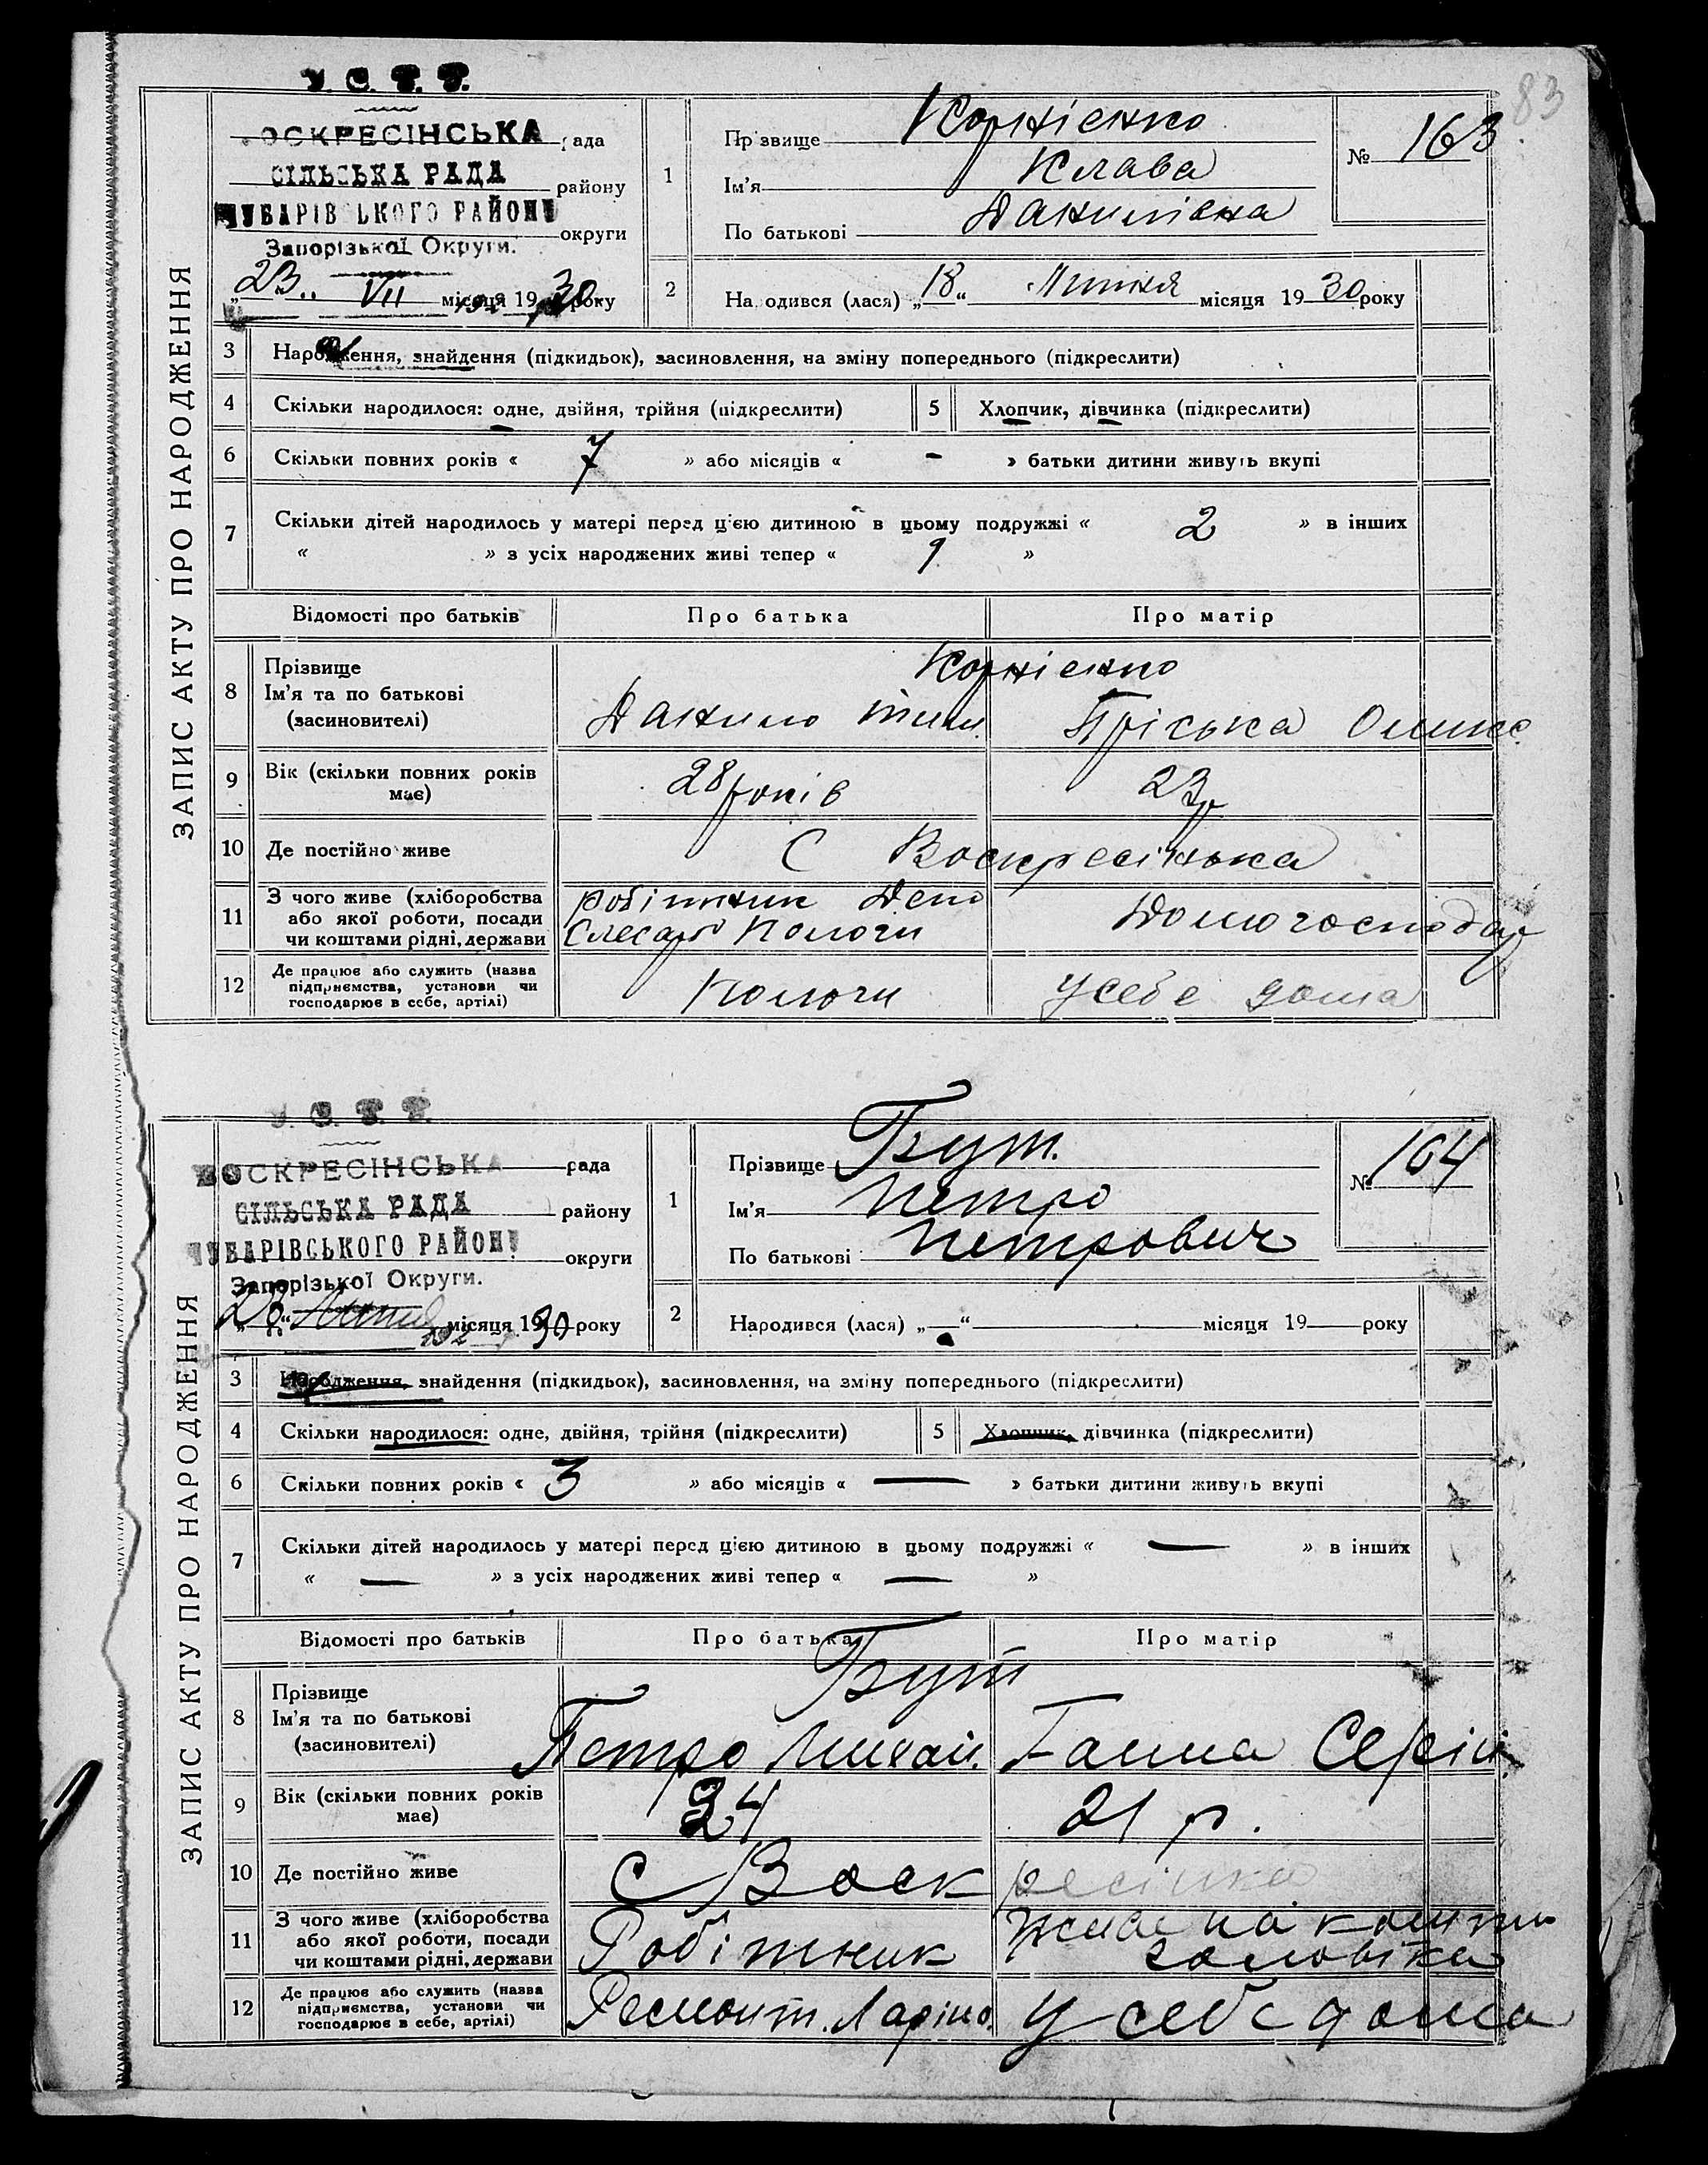 83
У. С. Р. Р.
ВОСКРЕСІНСЬКА рада
СІЛЬСЬКА РАДА району
ЧУБАРІВСЬКОГО РАЙОНУ
Запорізької Округи. округи
„23“ VII місяця 1930 року
ЗАПИС АКТУ ПРО НАРОДЖЕННЯ
1 Прізвище Корнієнко
Ім'я Клава
По батькові Данилівна
№ 163
2 Народився (лася) „18“ Липня місяця 1930 року
3 Народження, знайдення (підкидьок), засиновлення, на зміну попереднього (підкреслити)
4 Скільки народилося: одне, двійня, трійня (підкреслити) 5 Хлопчик, дівчинка (підкреслити)
6 Скільки повних років « 7 » або місяців « - » батьки дитини живуть вкупі
7 Скільки дітей народилось у матері перед цією дитиною в цьому подружжі « 2 » в інших
« » з усіх народжених живі тепер « 1 »
Відомості про батьків Про батька Про матір
8 Прізвище Корнієнко
Ім'я та по батькові Данило тим. Пріська Оликс
(засиновителі)
9 Вік (скільки повних років має) 28 років 23 р
10 Де постійно живе С Воскресінька
11 З чого живе (хліборобства робітник Депо
або якої роботи, посади Слесарь Пологи Домогосподар
чи коштами рідні, держави
12 Де працює або служить (назва
підприємства, установи чи Пологи У себе дома
господарює в себе, артілі)
У. С. Р. Р.
ВОСКРЕСІНСЬКА рада
СІЛЬСЬКА РАДА району
ЧУБАРІВСЬКОГО РАЙОНУ
Запорізької Округи. округи
„28“ Липня місяця 1930 року
ЗАПИС АКТУ ПРО НАРОДЖЕННЯ
1 Прізвище Бут.
Ім'я Петро
По батькові Петрович
№ 164
2 Народився (лася) „ “ місяця 19 року
3 Народження, знайдення (підкидьок), засиновлення, на зміну попереднього (підкреслити)
4 Скільки народилося: одне, двійня, трійня (підкреслити) 5 Хлопчик, дівчинка (підкреслити)
6 Скільки повних років « 3 » або місяців « — » батьки дитини живуть вкупі
7 Скільки дітей народилось у матері перед цією дитиною в цьому подружжі « — » в інших
« — » з усіх народжених живі тепер « — »
Відомості про батьків Про батька Про матір
8 Прізвище Бут
Ім'я та по батькові Петро Михай. Ганна Сергіи.
(засиновителі)
9 Вік (скільки повних років має) 24 21 р.
10 Де постійно живе С Воскресінка
11 З чого живе (хліборобства Живе на кошти
або якої роботи, посади Робітник чоловіка
чи коштами рідні, держави
12 Де працює або служить (назва
підприємства, установи чи Ремонт. Ларіно. У себе дома
господарює в себе, артілі)